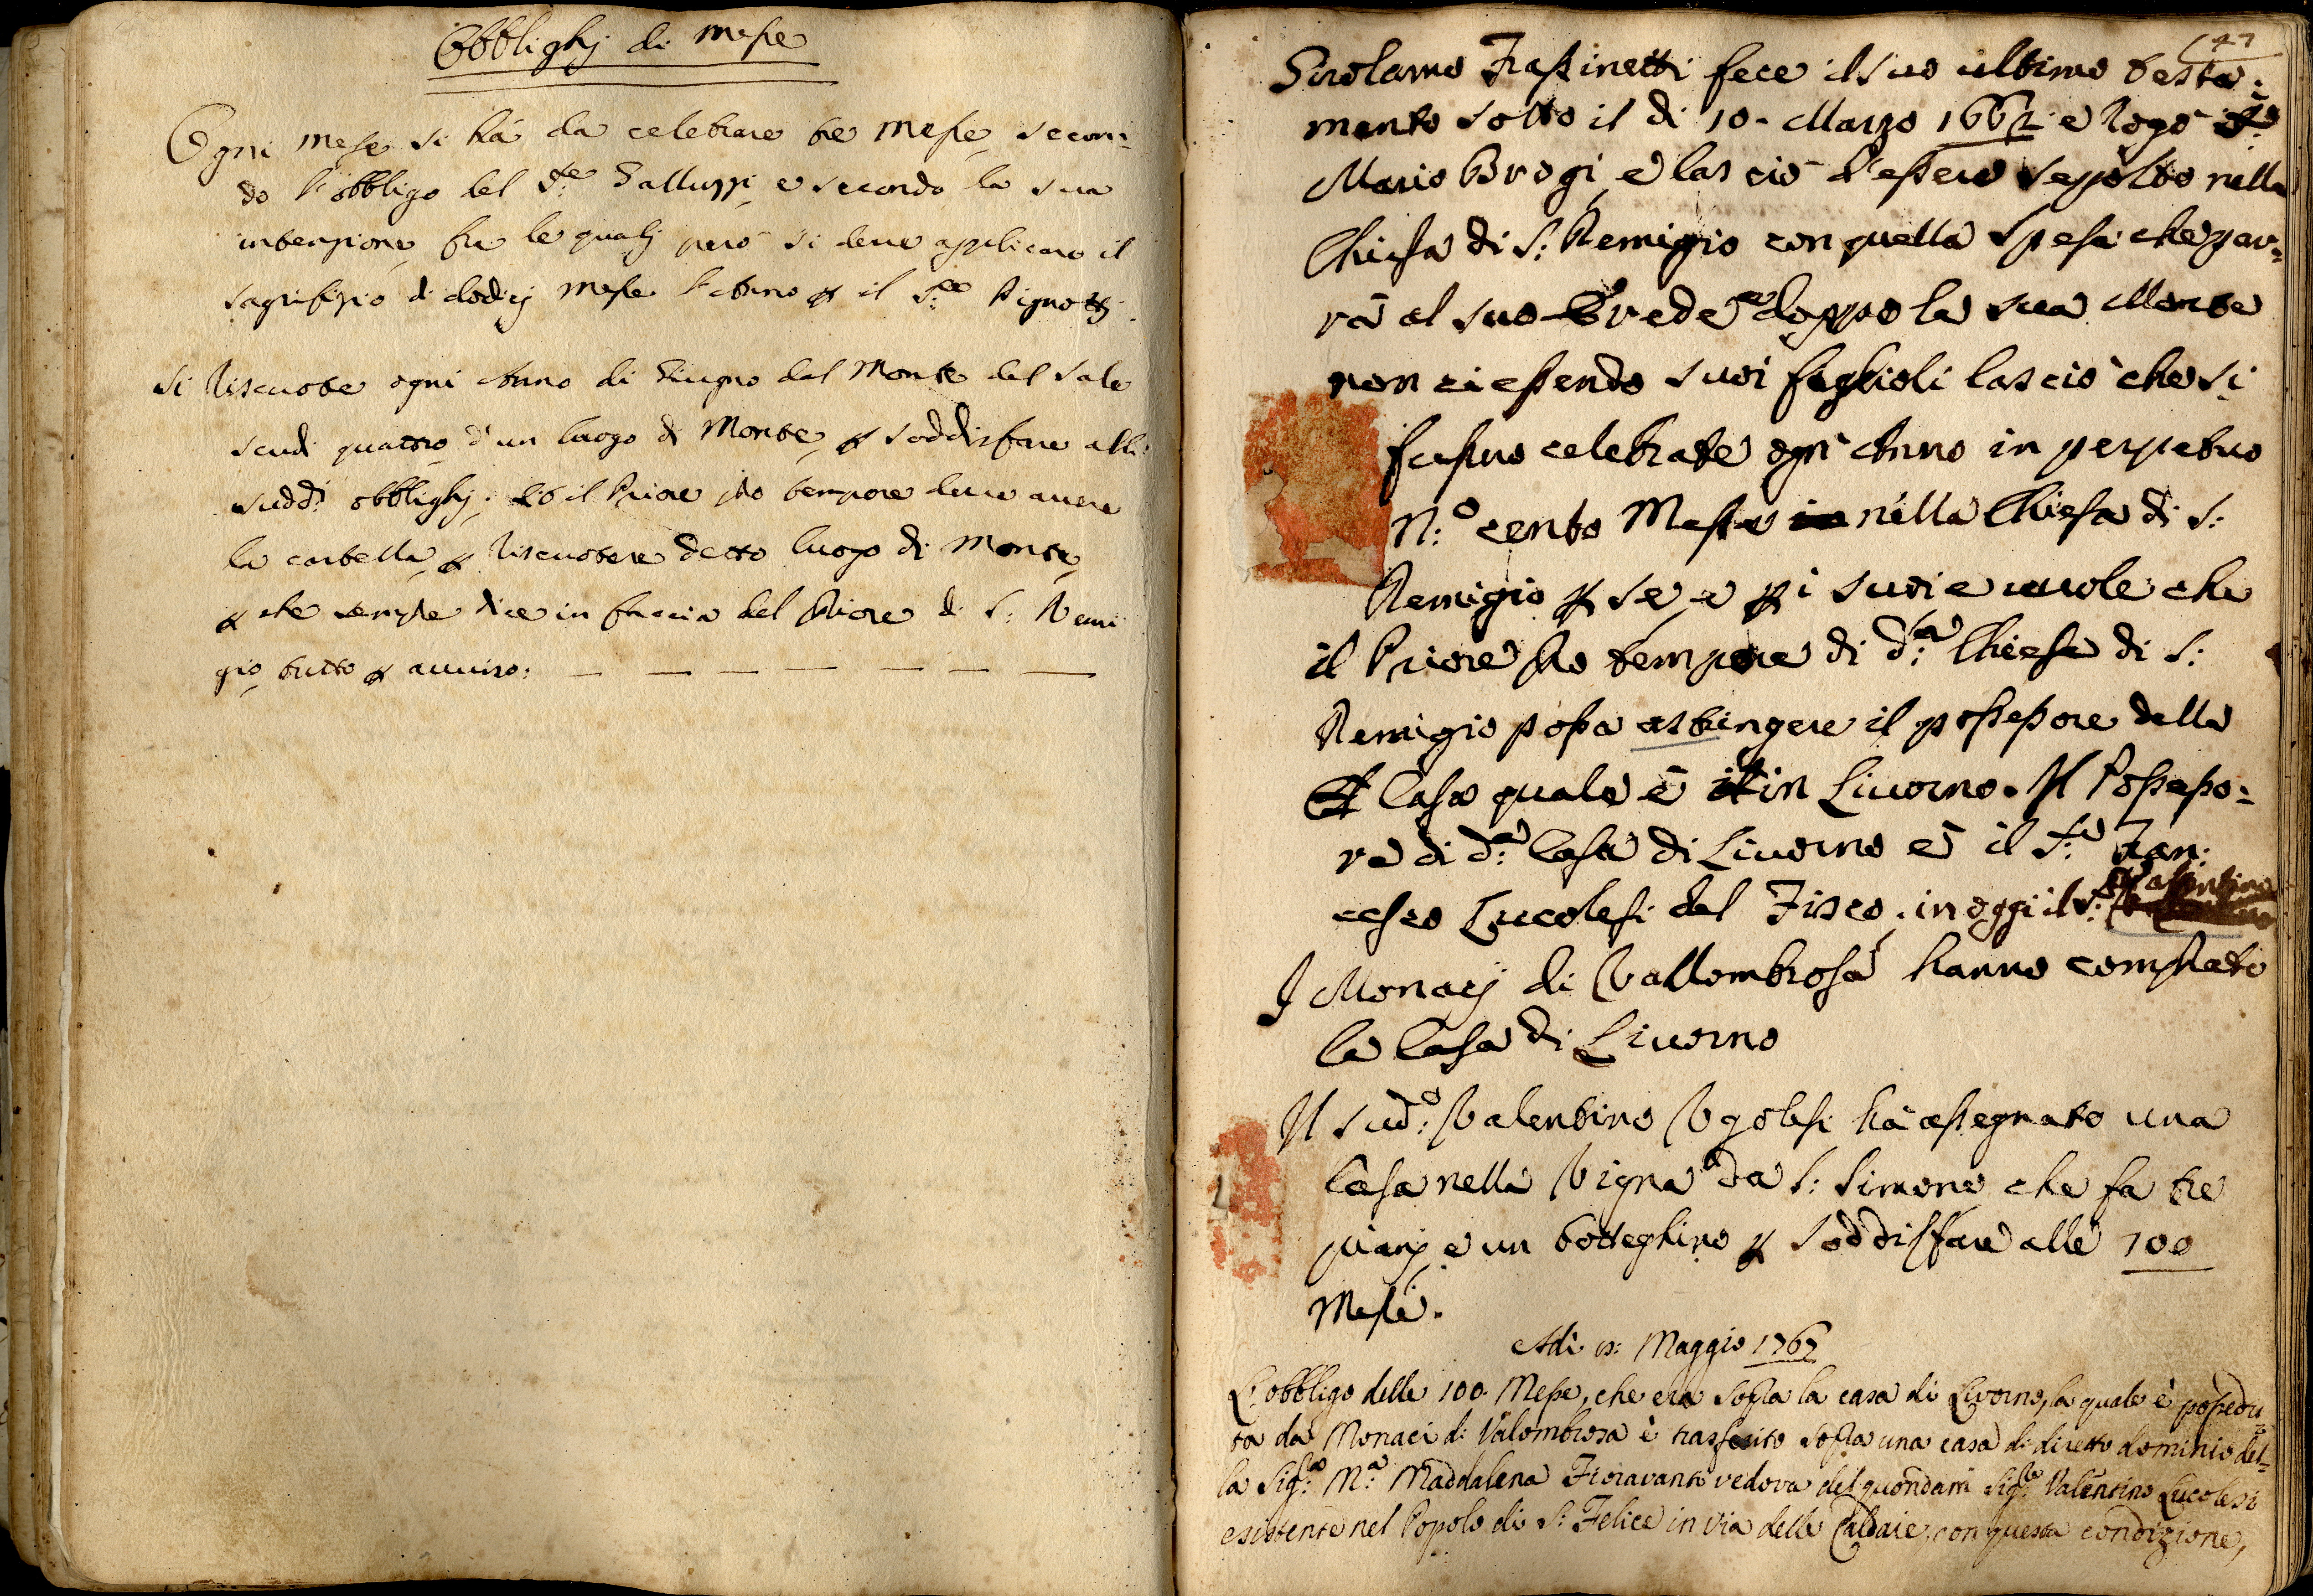 Obblighj di Messe
Ogni Mese si hà da celebrare tre Messe secon:
do l'obbligo del S.re Galluzzi, e secondo la sua
intenzione fra le qualj però si deve applicare il
sagrifizio di dodicj Messe l'Anno p il S.re Pignottj.
Si riscuote ogni Anno di Giugno dal Monte del Sale
scudi quattro d'un luogo di Monte, p soddisfare alli
sudd.i obblighj. Et il Priore pro tempore deve avere
la cartella p riscuotere detto luogo di Monte,
p che sempre dice in faccia del Priore di S: Remi
gio, tutto p avviso:
47
Girolamo Frassinetti fece il suo ultimo testa:
mento sotto il di 10. Marzo 1667 e rogò
Mario Brogi, e lasciò d'essere seppolto nella
Chiesa di S: Remigio con quella spesa che par:
rà al suo Erede doppo la sua Morte
non ci essendo suoi figlioli lasciò che si
fussino celebrate ogni Anno in perpetuo
N:o cento Messe nella Chiesa di S:
Remigio p se, e p i suoi e vuole che
il Priore pro tempore di d:a Chiesa di S:
Remigio possa astringere il possessore della
Casa quale è in Livorno. Il Possesso:
re di d:a Casa di Livorno è il S:e Fran:
cesco Lucolesi del Fisco, in oggi il S: Valentino
I Monacj di Vallombrosa hanno comprato
la Casa di Livorno
Il sud:o Valentino Ugolesi hà assegnato una
Casa nella Vigna da S: Simone che fa tre
pianj e un botteghino p soddisfare alle 100
Messe.
Adì Maggio 1767
L'obbligo delle 100 Messe, che era sopra la casa di Livorno, la quale è possedu
ta da Monaci di Valombrosa è trasferito sopra una casa di diretto dominio del=
la Sig:a M:a Maddalena Fioravanti vedova del quondam Sig:re Valentino Lucolesi
esistente nel Popolo di S: Felice in via delle Caldaie, con questa condizione,